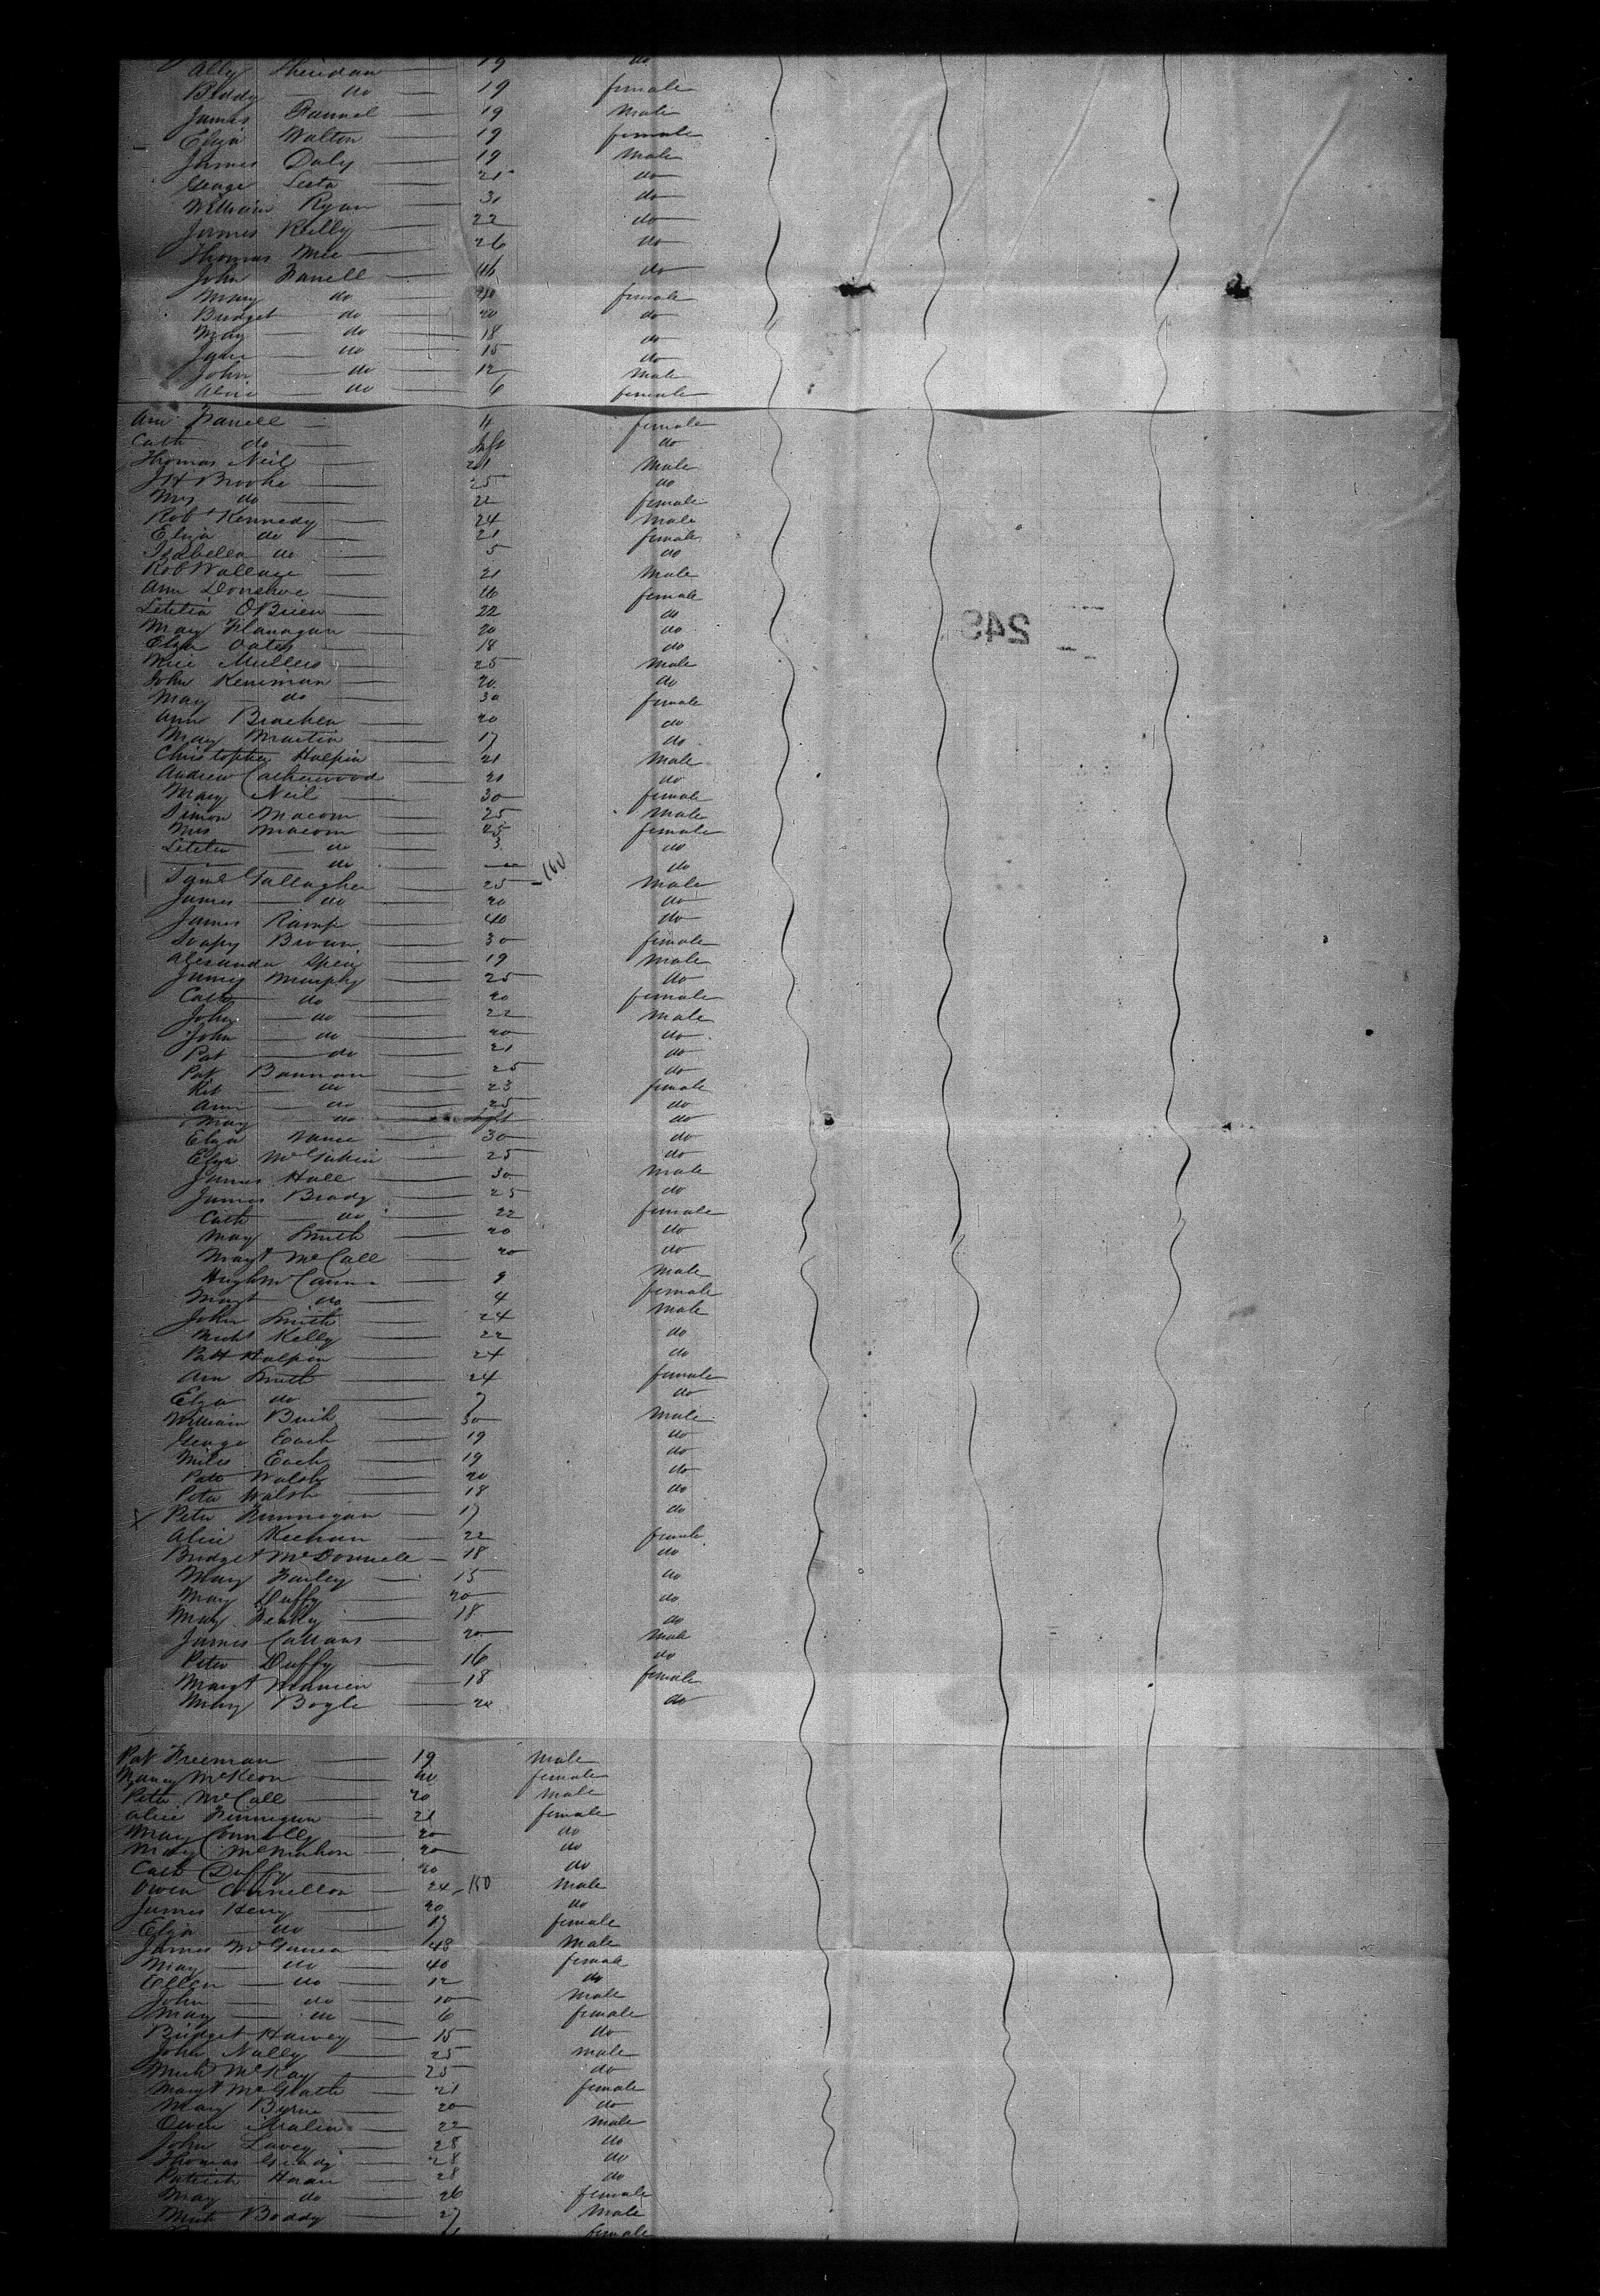 Ally Sheridan 19 do
Biddy do 19 female
James 19 Male
Eliza Walton 19 female
James Daly 19 Male
George 21 do
William Ryan 31 do
James Reilly 22 do
Thomas Mee 26 do
John Farrell 46 do
Mary do 40 female
Bridget do 20 do
Mary do 18 do
Jane do 15 do
John do 12 Male
Alice do 6 female
Ann Farrell 4 female
Cath do Inft do
Thomas Neil 21 Male
J H Brooke 25 do
Mrs do 22 female
Robt Kennedy 24 Male
Eliza do 21 female
Isabella do 5 do
Rob Wallace 21 Male
Ann Donohoe 16 female
Letitia OBrien 22 do
Mary Flanagan 20 do
Eliza Oates 18 do
Mullers 25 Male
John 20 do
Mary do 30 female
Ann Bracken 20 do
Mary Martin 17 do
Christopher Halpin 21 Male
Andrew Catherwood 21 do
Mary Neil 30 female
Simon Macom 25 Male
Mrs Macom 25 female
Letitia do 3 do
do do
Gallagher 25 -160 Male
James do 20 do
James Kamp 40 do
Soapy Brown 30 female
Alexander 19 Male
James Murphy 25 do
Cath do 20 female
John do 22 Male
John do 20 do
Pat do 21 do
Pat Bannan 25 do
Kit do 23 female
Ann do 25 do
Mary do Inft do
Eliza 30 do
Eliza 25 do
James Hall 30 Male
James Brady 25 do
Cath do 22 female
Mary Smith 20 do
Margt McCall 20 do
Hugh McCann 9 Male
Margt do 4 female
John Smith 24 Male
Michl Kelly 22 do
Patt Halpin 24 do
Ann Smith 24 female
Eliza do 7 do
William 30 Male
George Each 19 do
Miles Each 19 do
Patt Walsh 20 do
Peter Walsh 18 do
X Peter Finnigan 17 do
Alice Keenan 22 female
Bridget McDonnell 18 do
Mary Farley 15 do
Mary Duffy 20 do
Mary 18 do
James Callans 20 Male
Peter Duffy 16 do
Margt 18 female
Mary Bogle 20 do
Pat Freeman 19 Male
Nancy McKeon 40 female
Peter McCall 20 Male
Alice Finnigan 21 female
Mary Connolly 20 do
Mary McMahon 20 do
Cath Duffy 20 do
Owen Connellon 24 -150 Male
James Henry 20 do
Eliza do 17 female
James 48 Male
Mary do 40 female
Ellen do 12 do
John do 10 Male
Mary do 6 female
Bridget Harvey 15 do
John Nally 25 Male
Mich McKay 25 do
Margt McGrath 21 female
Mary Byrne 20 do
Owen 22 Male
John Lavey 28 do
Thomas Grady 28 do
Patrick Horan 28 do
Mary do 26 female
Mich Boddy 27 Male
female